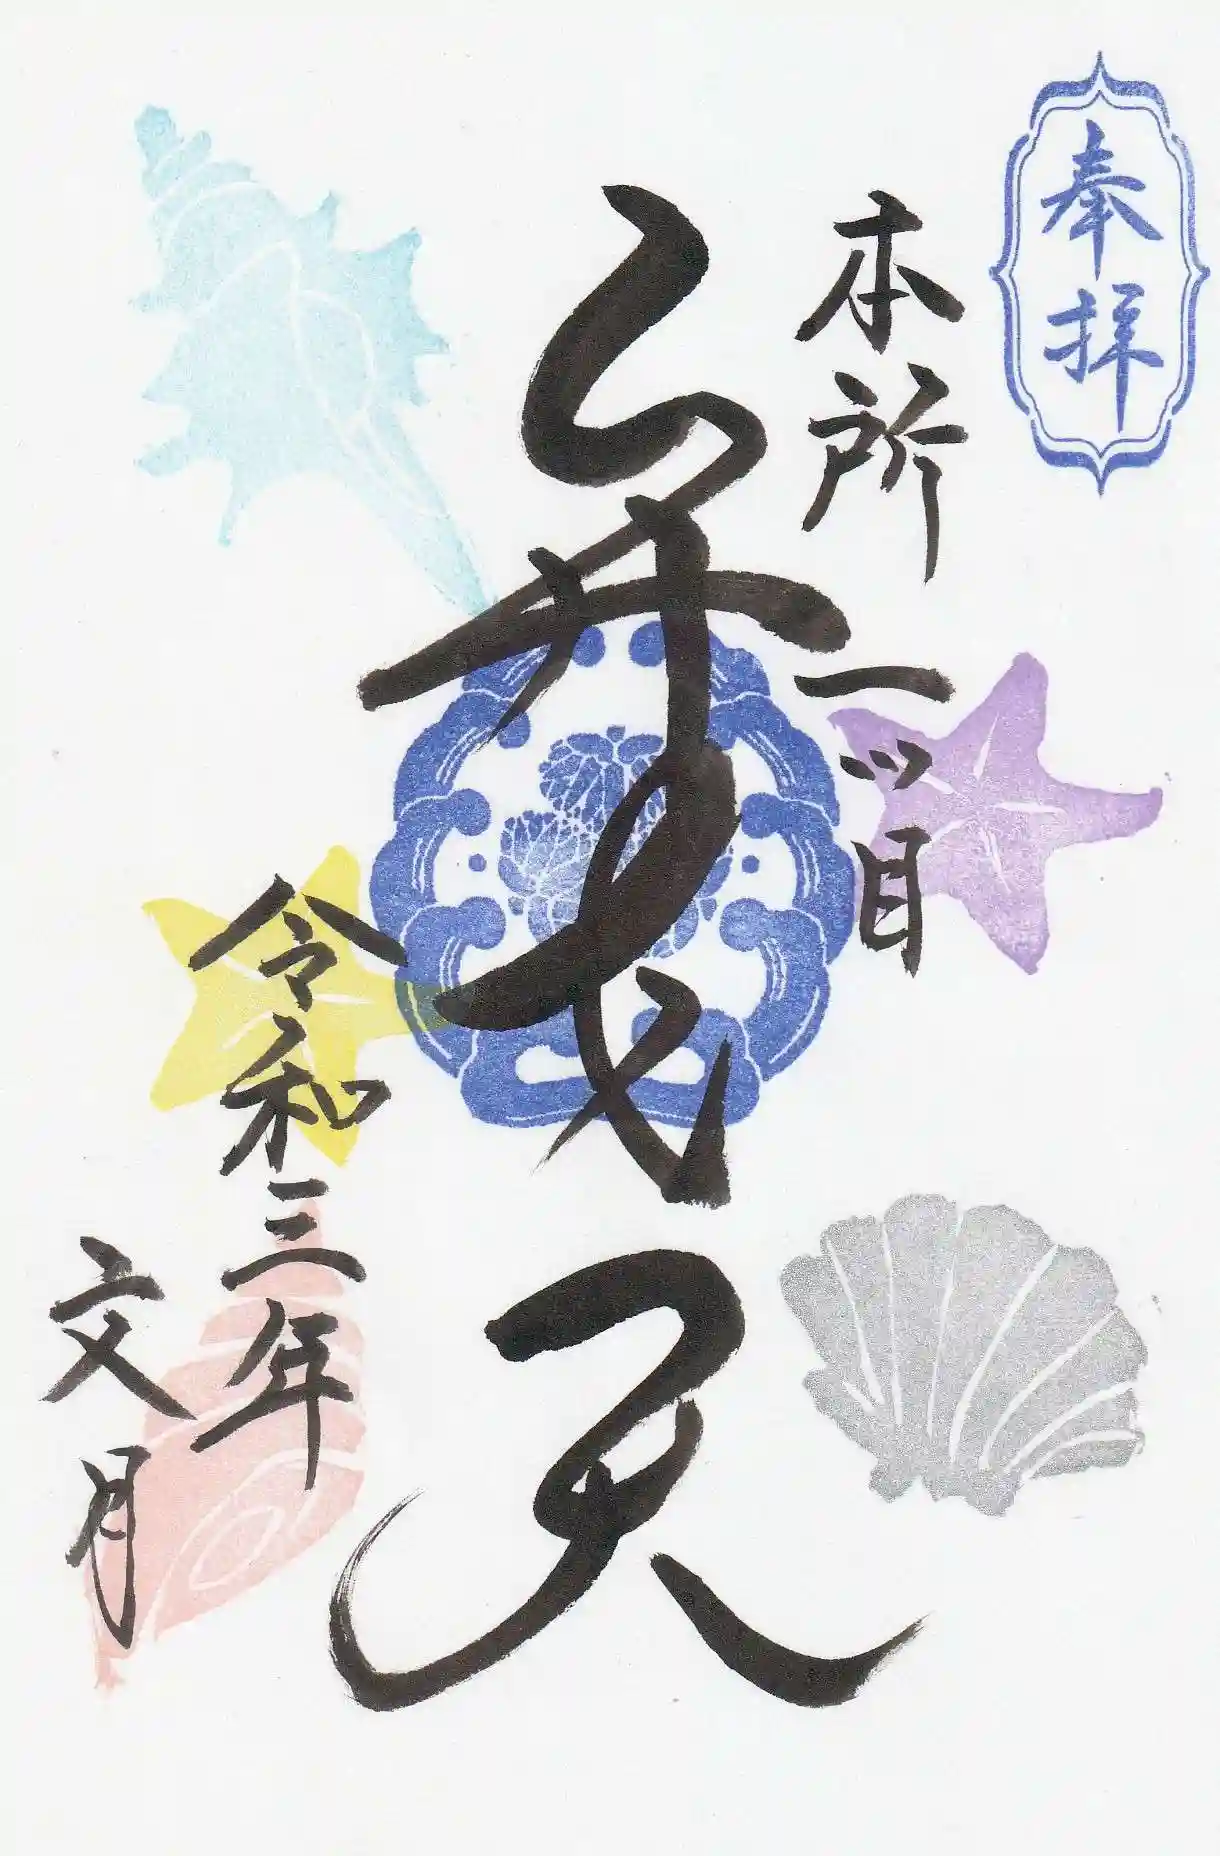 奉拝
本所一ツ目
弁才天
令和三年
文月